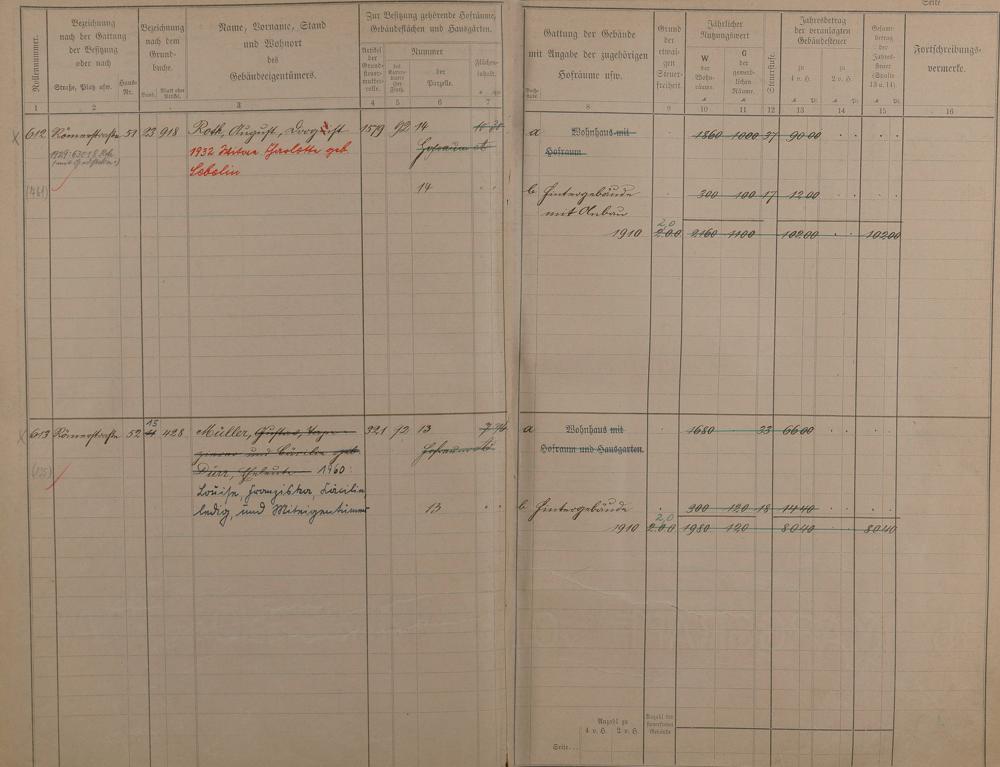 Seite
Rollennummer.
Bezeichnung
nach der Gattung
der Besitzung
oder nach
Straße, Platz usw.
Haus-
Nr.
Bezeichnung
nach dem
Grund-
buche.
Band.
Blatt oder
Artikel.
Name, Vorname, Stand
und Wohnort
des
Gebäudeeigentümers.
Zur Besitzung gehörende Hofräume,
Gebäudeflächen und Hausgärten.
Artikel
der
Grund-
steuer-
mutter-
rolle.
Nummer
des
Karten-
blatts
(der
Flur).
der
Parzelle.
Flächen-
inhalt.
a qm
Gattung der Gebäude
mit Angabe der zugehörigen
Hofräume usw.
Buch-
stabe
Grund
der
etwai-
gen
Steuer-
freiheit.
Jährlicher
Nutzungswert
W
der
Wohn-
räume.
G
der
gewerb-
lichen
Räume.
Steuerstufe.
Jahresbetrag
der veranlagten
Gebäudesteuer
zu
4 v. H.
zu
2 v. H.
Gesamt-
betrag
der
Jahres-
steuer
(Spalte
13 u. 14).
Fortschreibungs-
vermerke.
1 2 3 4 5 6 7 8 9 10 11 12 13 14 15 16
612 Römerstraße 51 23 918 Roth, August, Drogist 1579 92 14
1932 Witwe Charlotte geb.
Hofraum
14
a Wohnhaus mit 1860 1000 37 90 00
Hofraum
b Hintergebäude 300 100 17 12 00
mit Anbau
1910 2,0 2160 1100 102 00 102 00
613 Römerstraße 52 15 428 Müller, Gustav, 321 92 13
und Cäcilie geb.
Dürr, Eheleute 1960:
Louise, Franziska, Cäcilie,
ledig, und Miteigentümer
13
a Wohnhaus mit 1680 33 66 00
Hofraum und Hausgarten.
b Hintergebäude 300 120 18 14 40
1910 2,0 1980 120 80 40 80 40
Anzahl zu
4 v. H. 2 v. H.
Anzahl der
steuerfreien
Gebäude
Seite...